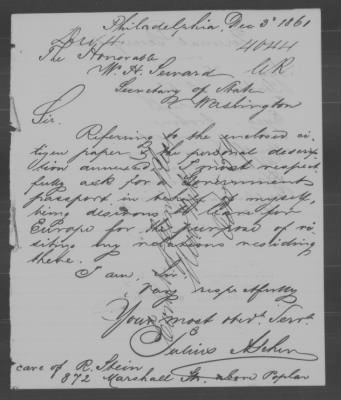 Philadelphia, Dec 3d 1861
The Honorable
W. H. Seward
Secretary of State
Washington
Sir.
Referring to the enclosed ci-
tizen paper & the personal descrip-
tion annexed, I most respect-
fully ask for a Government
passport in behalf of myself,
being desirous to leave for
Europe for the purpose of vi-
siting my relations residing
there.
I am Sir.
very respectfully
Your most obdt. Servt.
Julius
care of R. Stein
872 Marshall St. above Poplar